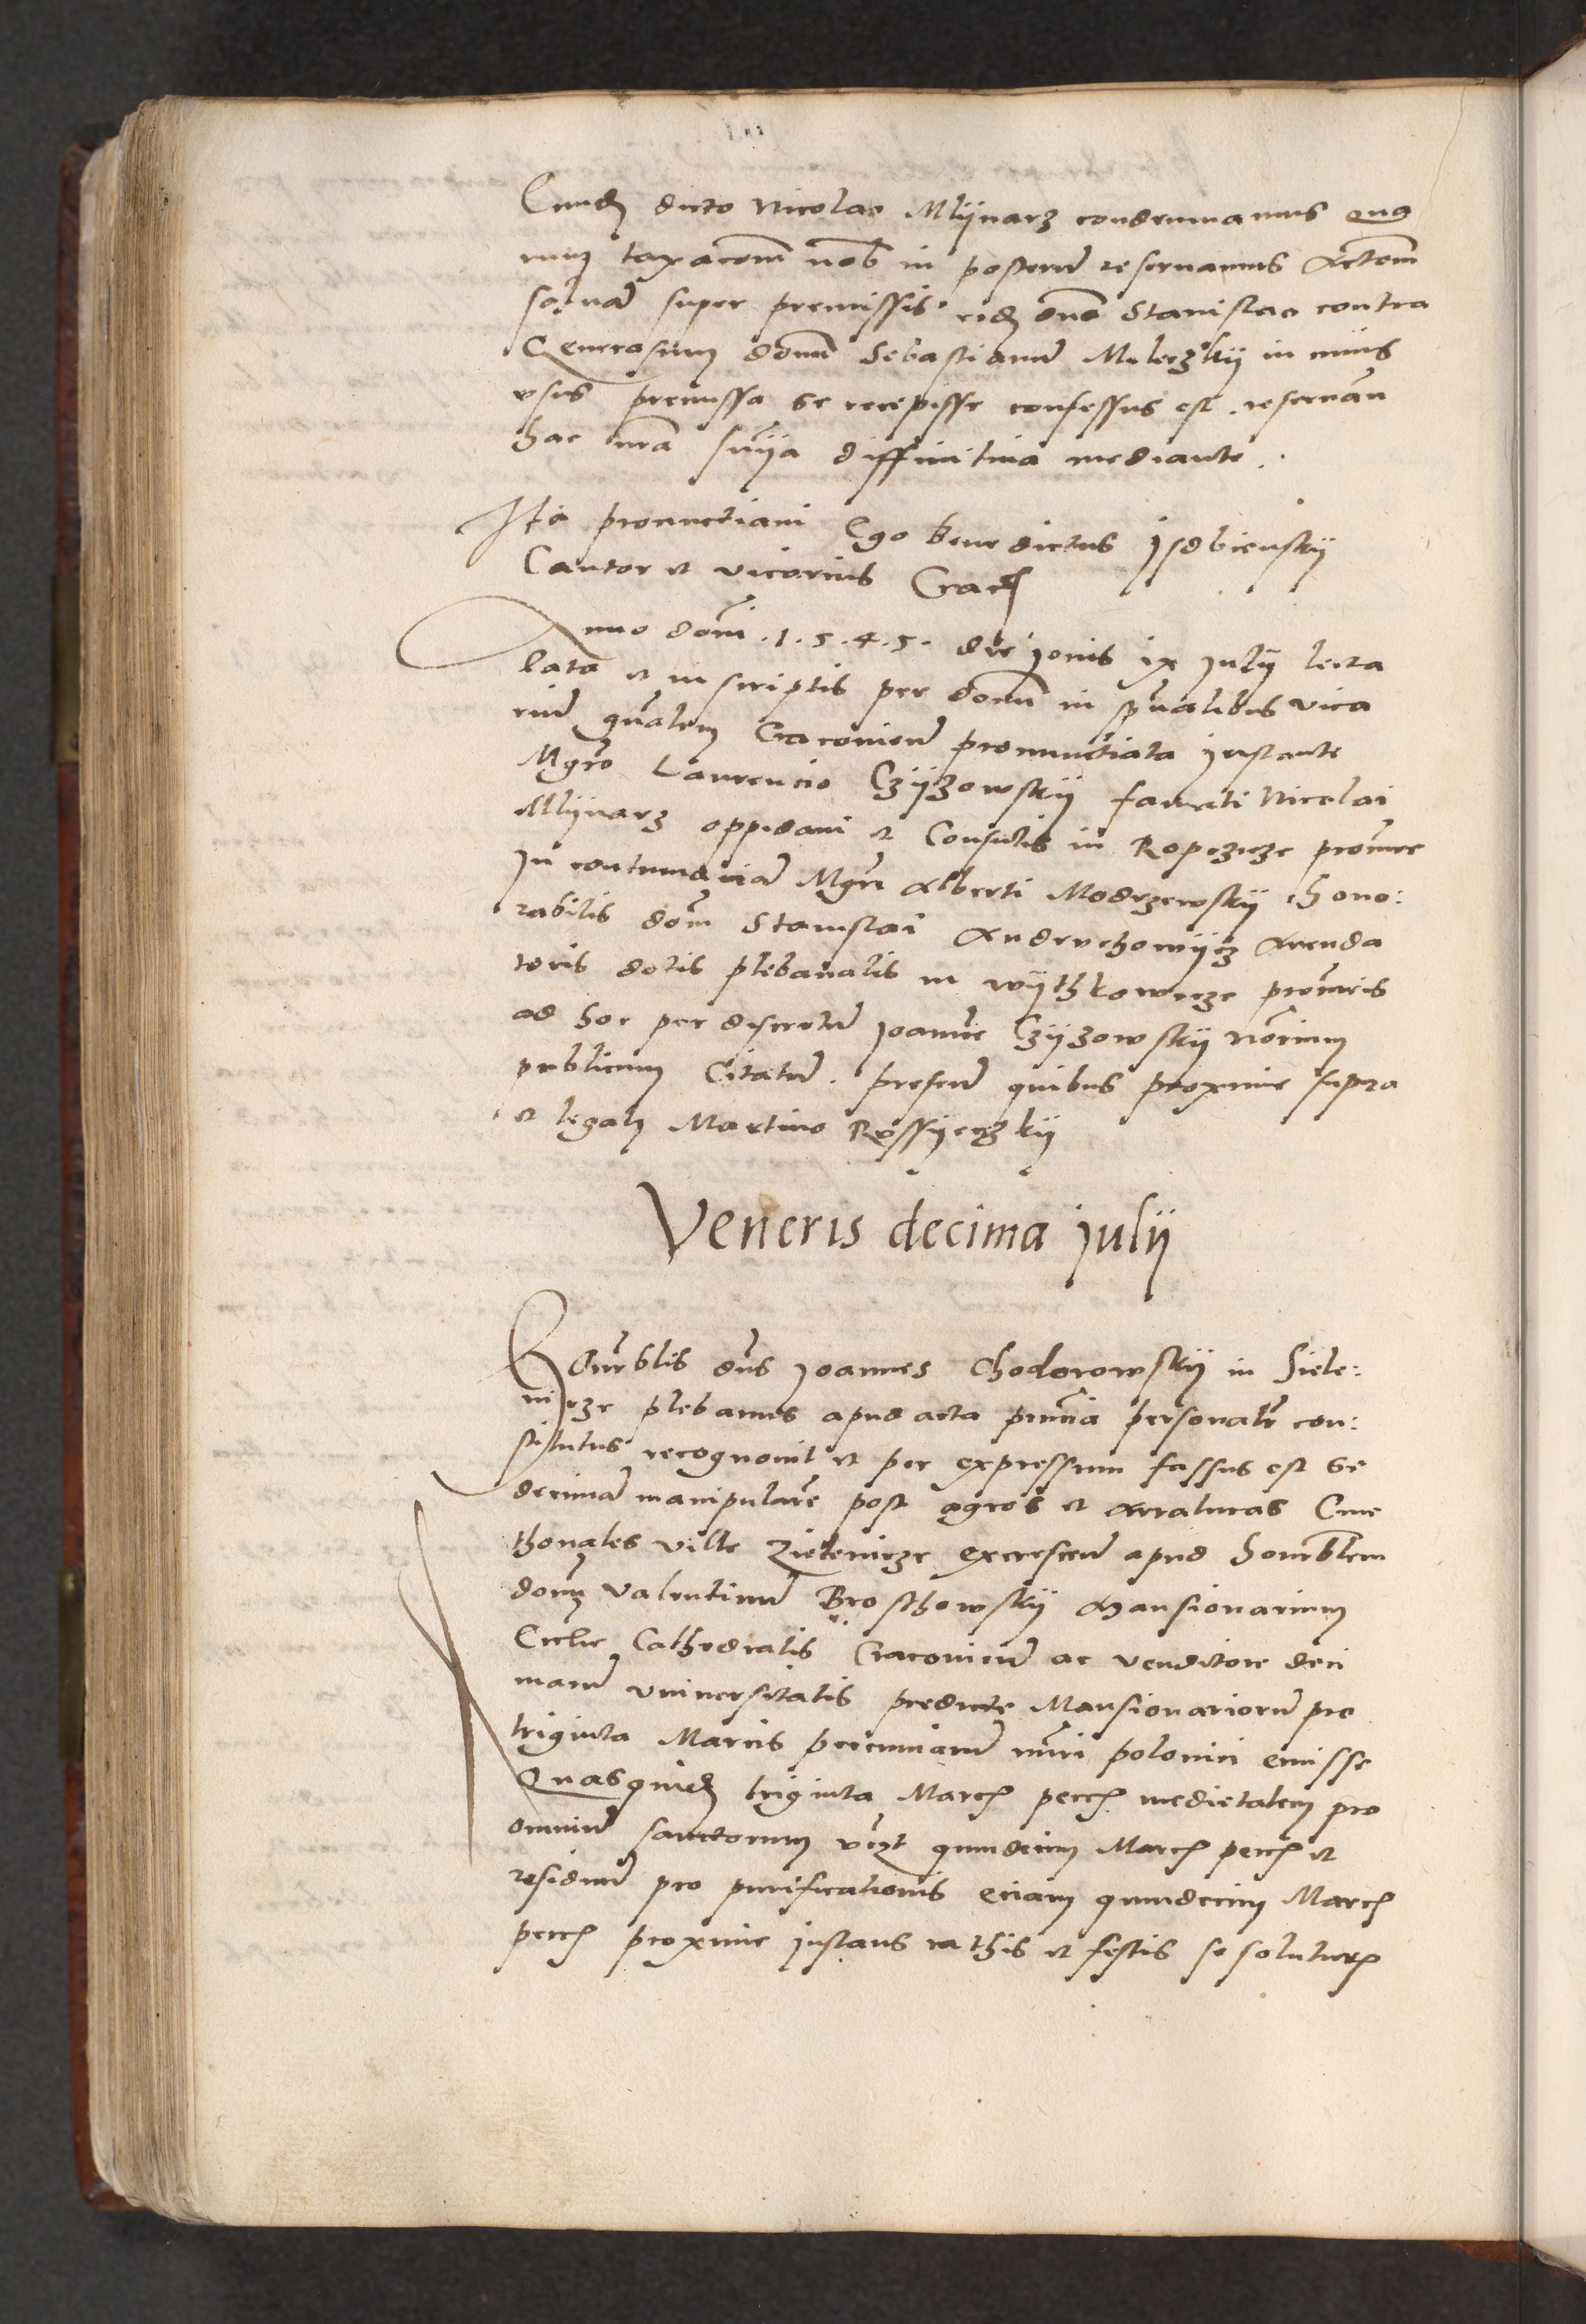 Eiusd dicto Nicolao Mlynarz condemnamus qua
rum taxacom nob in posterum reservamus Actom
salvam super premissis eid dno Stanislao contra
Generosum donm Sebastianum Mileczky in cuius
usus premissa se recepisse confessus est reservan
hac nra snia diffinitiva mediante.
Ita pronunctiavi Ego benedictus Jsdbiensky
Cantor et vicarius Crac
Anno domi .1.5.4.5. die Jovis ix Julij lecta
lata et in scriptis per donm in spualibus vica
rium gnalem Cracovien pronunctiata instante
Mgro Laurencio Czyzowsky famati Nicolai
Mlynarz oppidani et Consulis in Ropczicze procure
In contumaciam Mgri Alberti Modrzewsky hono:
rabilis domi Stanislai Andrychowycz Arenda
toris dotis plebanalis in wythkowicze procuris
ad hoc per discretum Joannem Czyzowsky notarium
publicum Citatum. presen quibus proxime supra
et legali Martino Rossyeczky
Veneris decima julij
Honorablis dns Joannes Chodorowsky in Siele:
nicze plebanus apud acta pnncia personalr con:
stitutus recognovit et per expressum fassus est se
decimam manipularem post agros et Areaturas Cme
thonales ville Zieleniczе excrescen apud honorablem
donm Valentinum Broschowsky Mansionarium
Ecclie Cathedralis Cracovien ac venditore deci
marum universitatis predicte Mansionariorum pro
triginta Marcis pecuniarum nnri polonici emisse
Quasquid triginta March pecch medietatem pro
omnium sanctorum vizt quindecim March pecch et
residuum pro purificationis eciam quindecim March
pecch proxime instans rathis et festis se soluturum